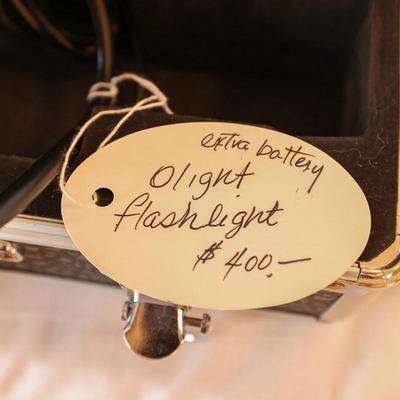 extra battery
Olight
flashlight
$400.—